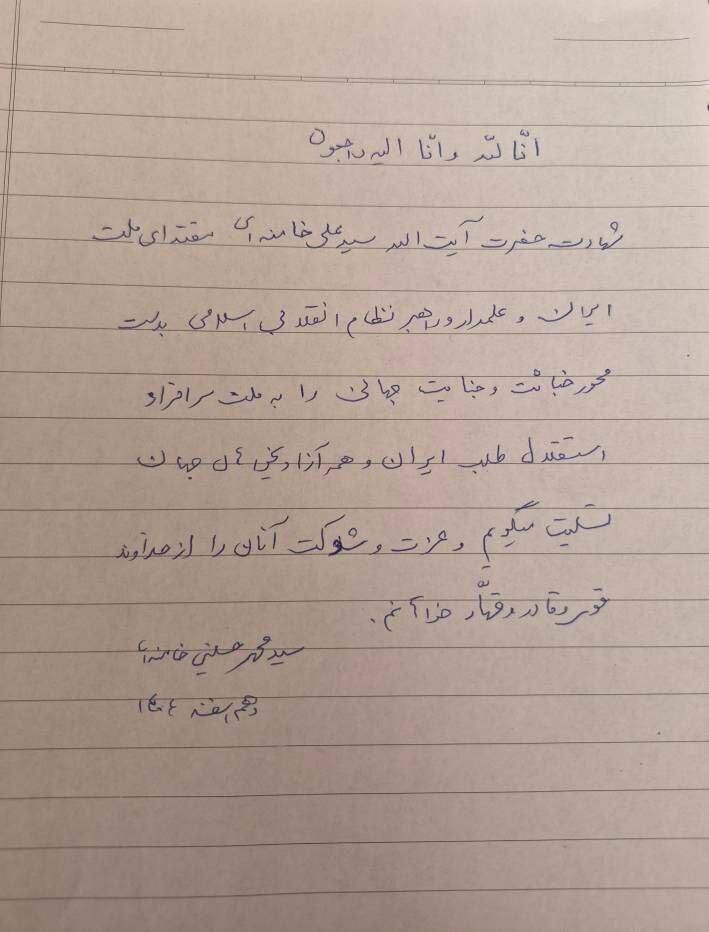 انّا للّه و انّا الیه راجعون
شهادت حضرت آیت الله سید علی خامنه ای مقتدای ملت
ایران و علمدار و راهبر نظام انقلابی اسلامی بدست
محور خباثت و جنایت جهانی را به ملت سرافراز و
استقلال طلب ایران و همه آزادیخواهان جهان
تسلیت میگویم و عزت و شوکت آنان را از خداوند
قوی و قادر و قهّار خواهانم.
سید محمد حسینی خامنه‌ای
دهم اسفند ۱۴۰۴